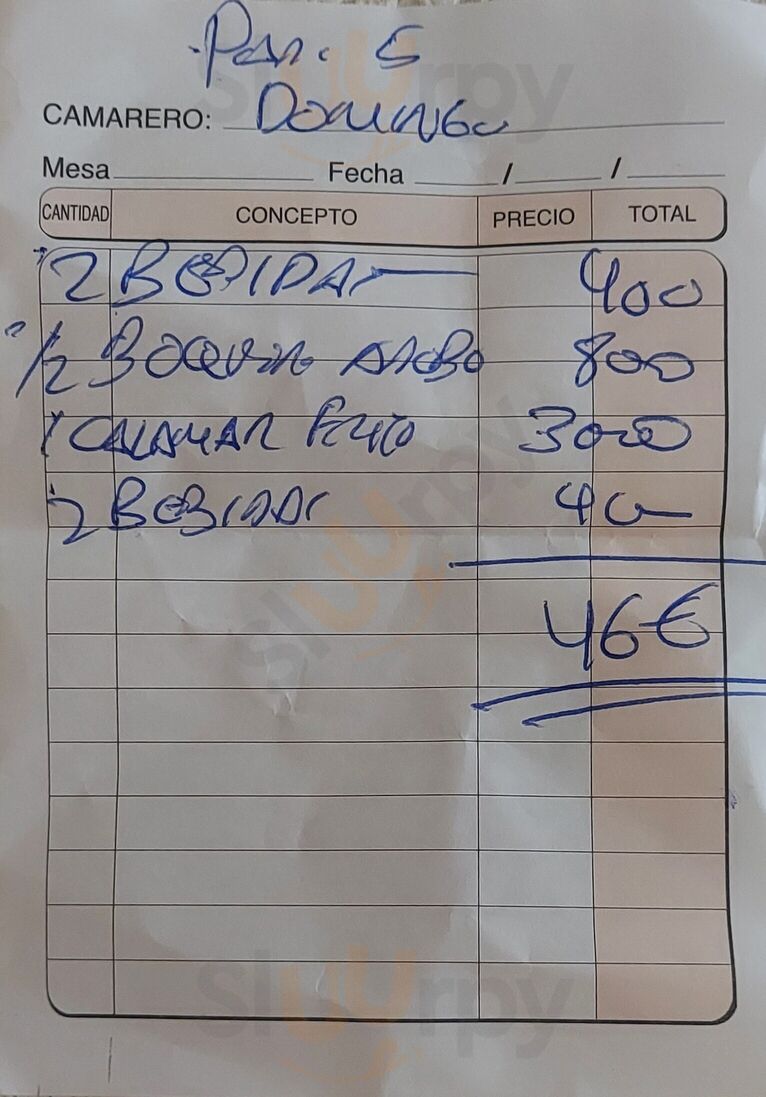 Par. 5
CAMARERO: DOMINGO
Mesa Fecha / /
CANTIDAD CONCEPTO PRECIO TOTAL
2 BEBIDAS 400
1/2 BOQUERON ADOBO 800
1 CALAMAR FRITO 3000
2 BEBIDAS 40
46€
Sluurpy
Sluurpy
Sluurpy